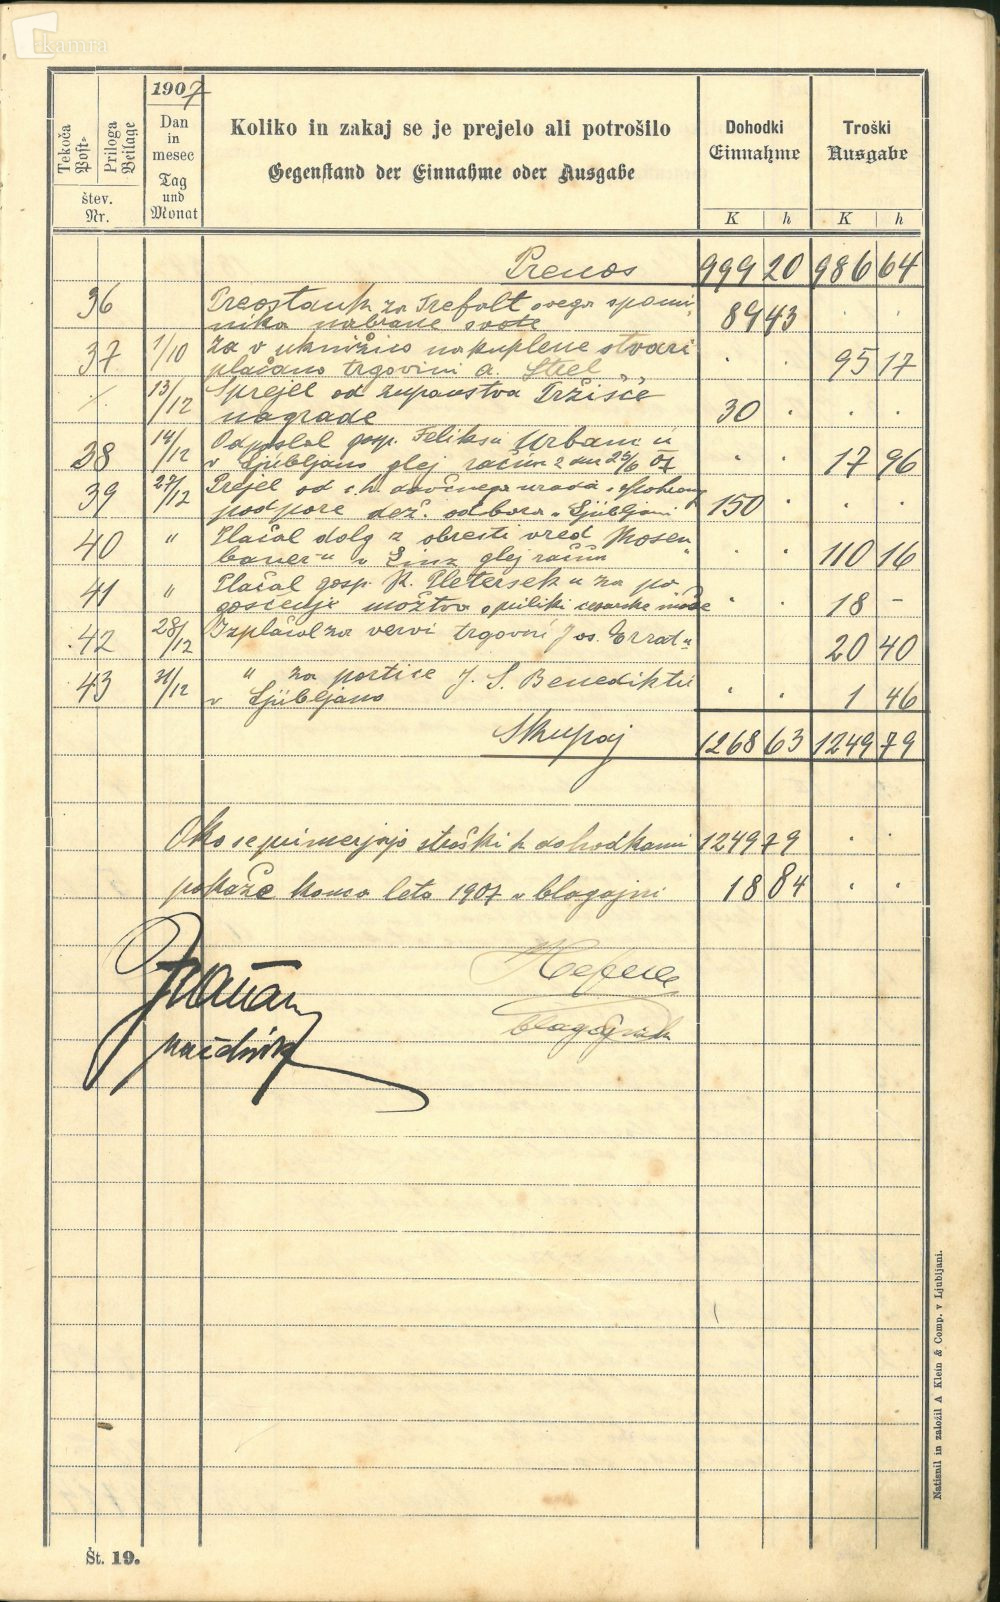 kamra
1907
Tekoča
Post-
Priloga
Beilage
štev.
Nr.
Dan
in
mesec
Tag
und
Monat
Koliko in zakaj se je prejelo ali potrošilo
Gegenstand der Einnahme oder Ausgabe
Dohodki
Einnahme
K h
Troški
Ausgabe
K h
Prenos 999 20 986 64
36 Preostank za Trefalt ovega spomi
nika nabrane svote 89 43
37 1/10 Za v uknižico nakuplene stvari
plačano trgovini A. Steel 95 17
13/12 Sprejel od županstva Tržišče
nagrade 30
38 14/12 Odposlal gosp. Feliksu Urbancu
v Ljubljano glej račun 07 17 96
39 27/12 Prejel od c. k. davčnega urada
podpore dež. odbora v Ljubljani 150
40 " Plačal dolg z obresti vred Rosen
bauer-u v Linz glej račun 110 16
41 " Plačal gosp. K. Pleteršek u za po
goščenje moštva o priliki cesarske maše 18 -
42 28/12 Izplačal za vervi trgovini Jos. Errat u 20 40
43 31/12 " za portice J. S. Benediktu
v Ljubljano 1 46
Skupaj 1268 63 1249 79
Ako se primerjajo stroški z dohodkami 1249 79
pokaže konca leto 1907 v blagajni 18 84
načelnik
blagajnik
Natisnil in založil A Klein & Comp. v Ljubljani.
Št. 19.